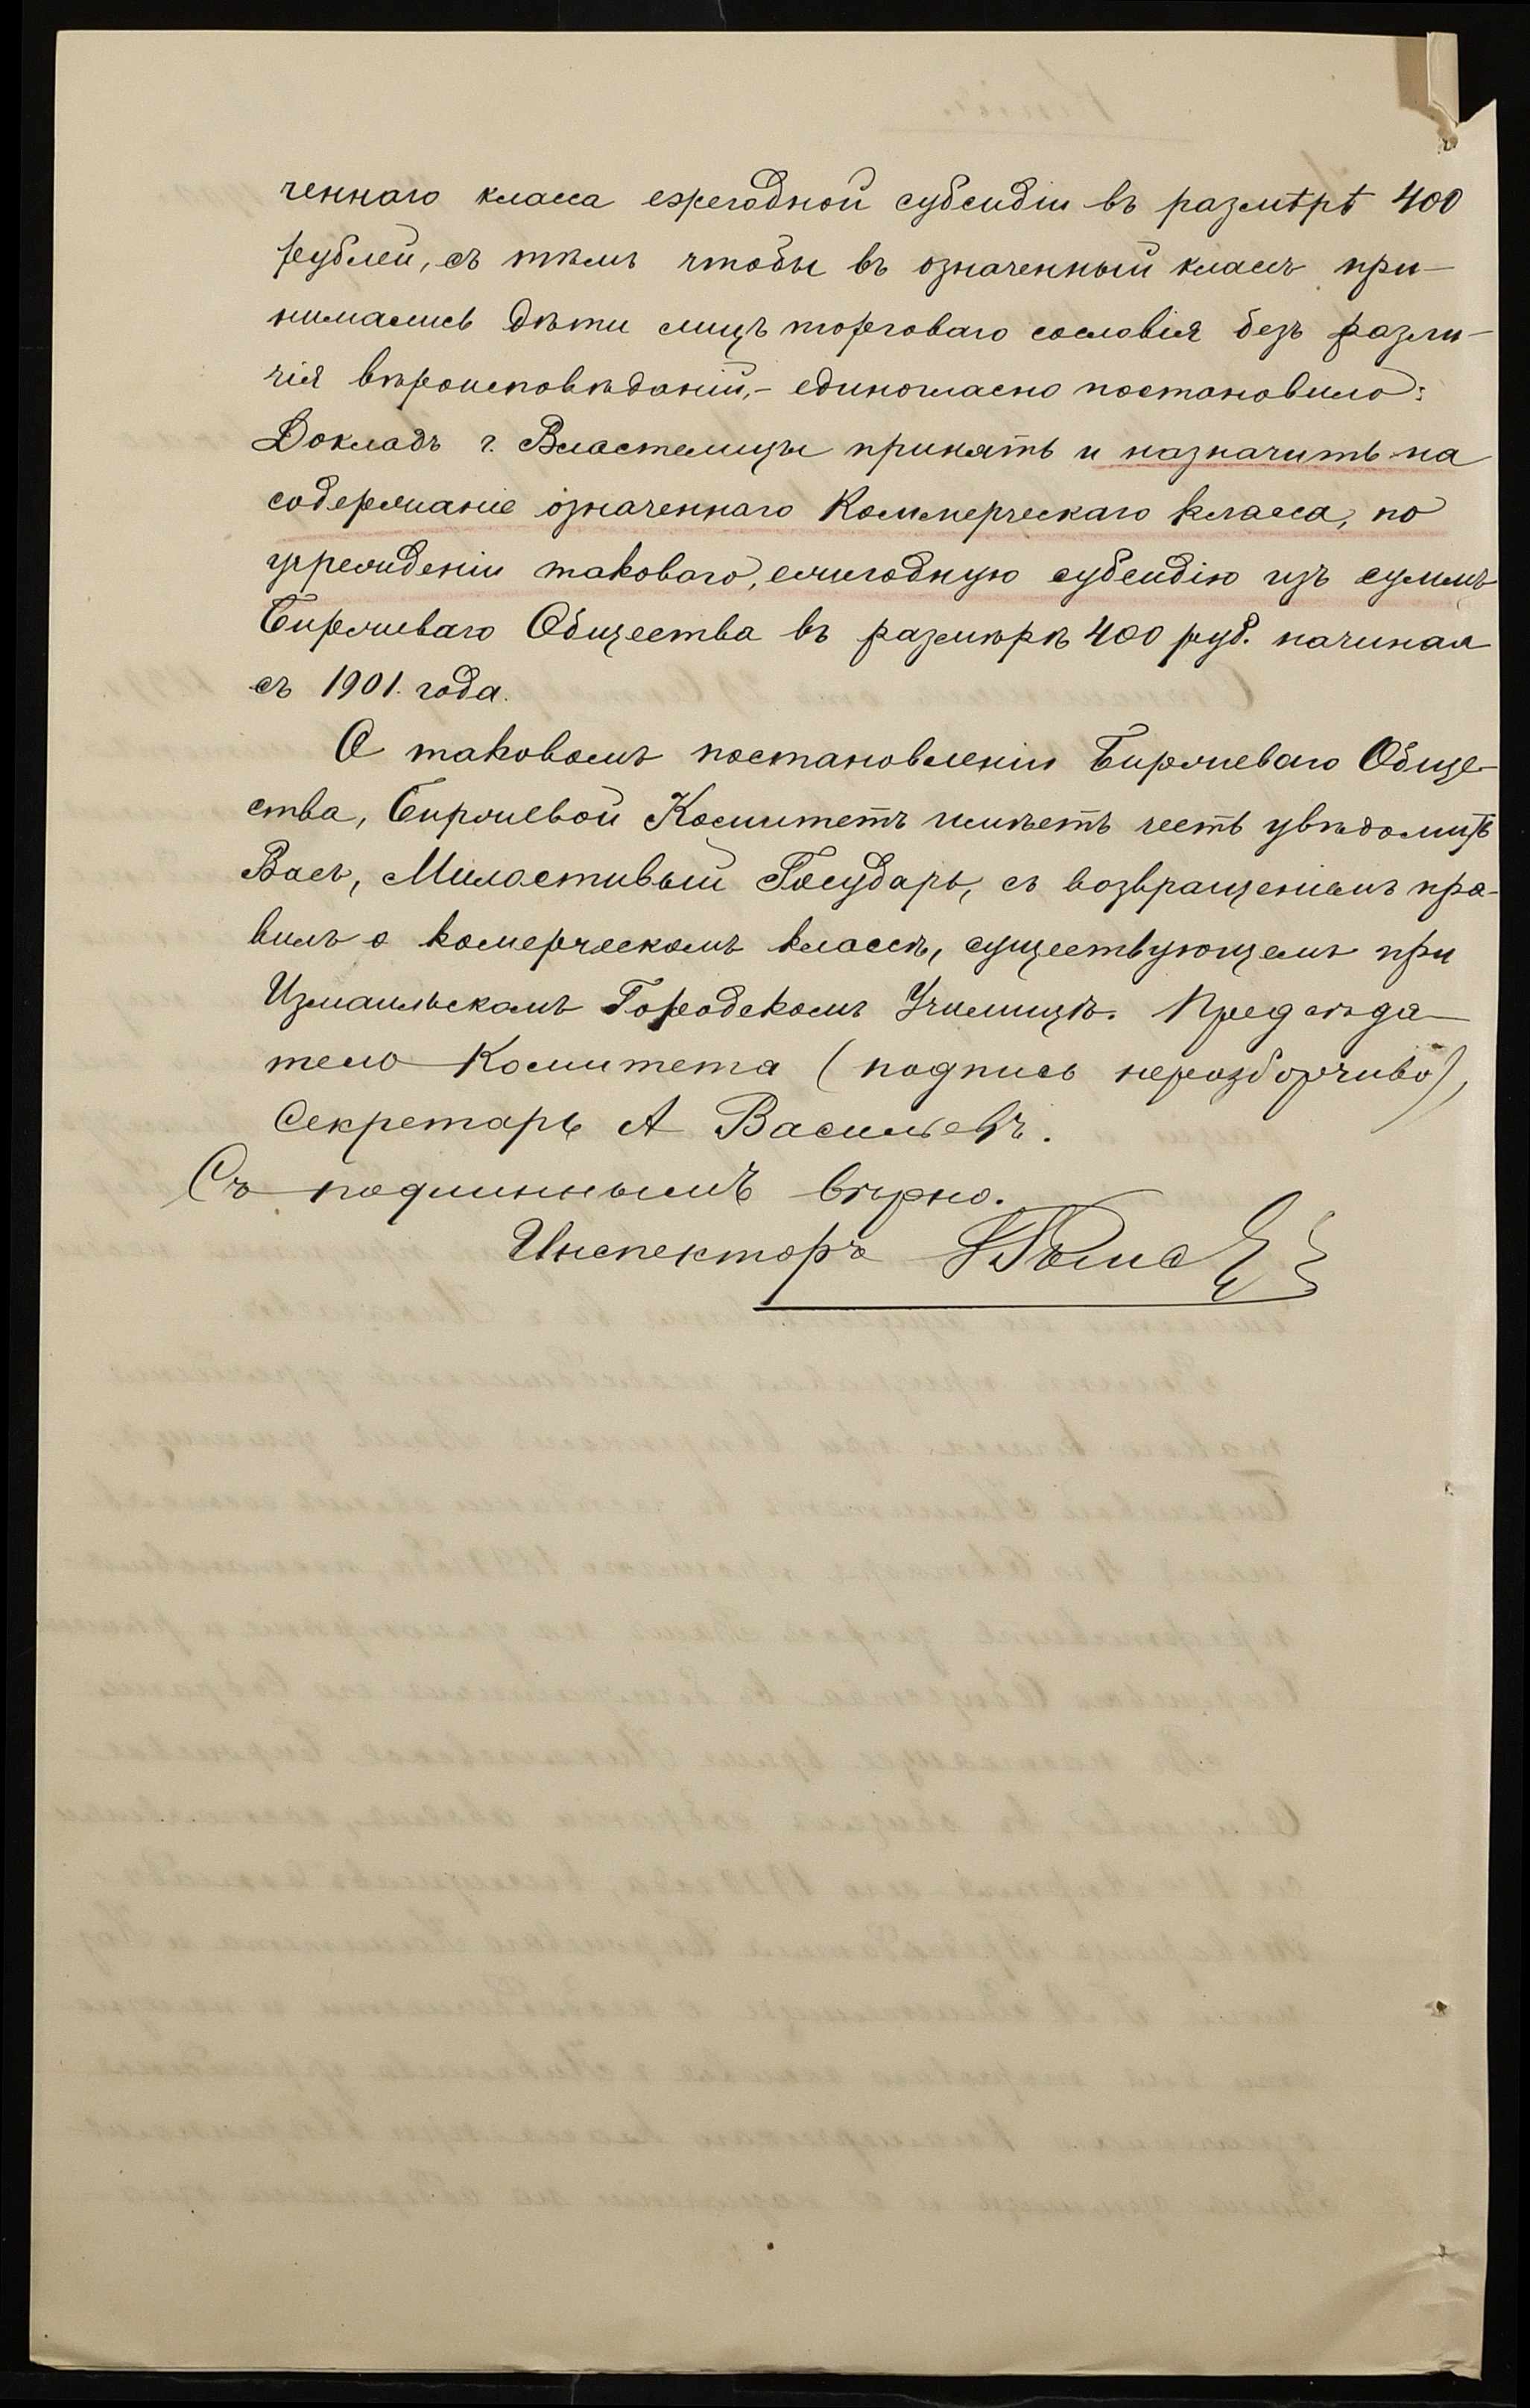 ченнаго класса ежегодной субсидіи въ размѣрѣ 400
рублей, съ тѣмъ чтобы въ означенный классъ при-
нимались дѣти лицъ торговаго сословія безъ разли-
чія вѣроисповѣданій,- единогласно постановило:
Докладъ г. Властелицы принять и назначить на
содержаніе означеннаго Коммерческаго класса, по
учрежденіи таковаго, ежегодную субсидію изъ суммъ
Биржеваго Общества въ размѣрѣ 400 руб. начиная
съ 1901. года.
О таковомъ постановленіи Биржеваго Обще-
ства, Биржевой Комитетъ имѣетъ честь увѣдомить
Васъ, Милостивый Государь, съ возвращеніемъ пра-
вилъ о комерческомъ классѣ, существующемъ при
Измаильскомъ Городскомъ Училищѣ. Предсѣда-
тель Комитета (подпись неразборчиво),
Секретарь А Васильевъ.
Съ подлиннымъ вѣрно.
Инспекторъ